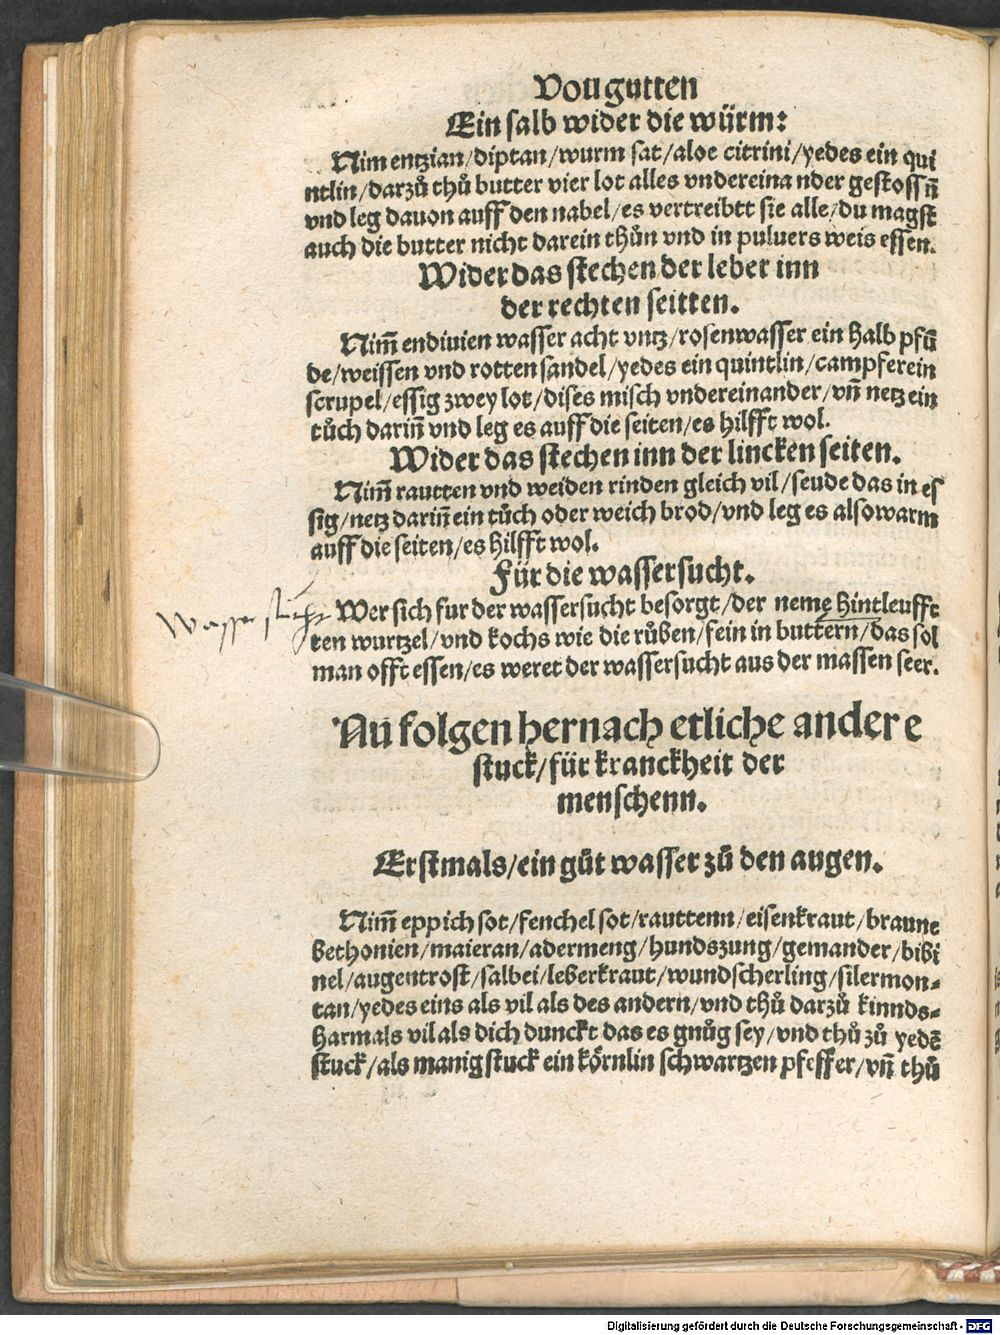 Vou gutten
Ein salb wider die würm:
Nim entzian/diptan/wurm sat/aloe citrini/yedes ein qui
ntlin/darzů thů butter vier lot alles vndereina nder gestossñ
vnd leg dauon auff den nabel/es vertreibtt sie alle/du magst
auch die butter nicht darein thůn vnd in puluers weis essen.
Wider das stechen der leber inn
der rechten seitten.
Nim̃ endiuien wasser acht vntz/rosenwasser ein halb pfũ
de/weissen vnd rotten sandel/yedes ein quintlin/campfer ein
scrupel/essig zwey lot/dises misch vndereinander/vñ netz ein
tůch dariñ vnd leg es auff die seiten/es hilfft wol.
Wider das stechen inn der lincken seiten.
Nim̃ rautten vnd weiden rinden gleich vil/seude das in es
sig/netz dariñ ein tůch oder weich brod/vnd leg es also warm
auff die seiten/es hilfft wol.
Für die wassersucht.
Wassersucht
Wer sich fur der wassersucht besorgt/der neme hintleufft
ten wurtzel/vnd kochs wie die růben/fein in buttern/das sol
man offt essen/es weret der wassersucht aus der massen seer.
Nũ folgen hernach etliche andere
stuck/für kranckheit der
menschenn.
Erstmals/ein gůt wasser zů den augen.
Nim̃ eppich sot/fenchel sot/rauttenn/eisenkraut/braune
bethonien/maieran/adermeng/hundszung/gemander/bibi
nel/augentrost/salbei/leberkraut/wundscherling/silermon-
tan/yedes eins als vil als des andern/vnd thů darzů kinnds-
harmals vil als dich dunckt das es gnůg sey/vnd thů zů yedẽ
stuck/als manig stuck ein körnlin schwartzen pfeffer/vñ thů
Digitalisierung gefördert durch die Deutsche Forschungsgemeinschaft - DFG